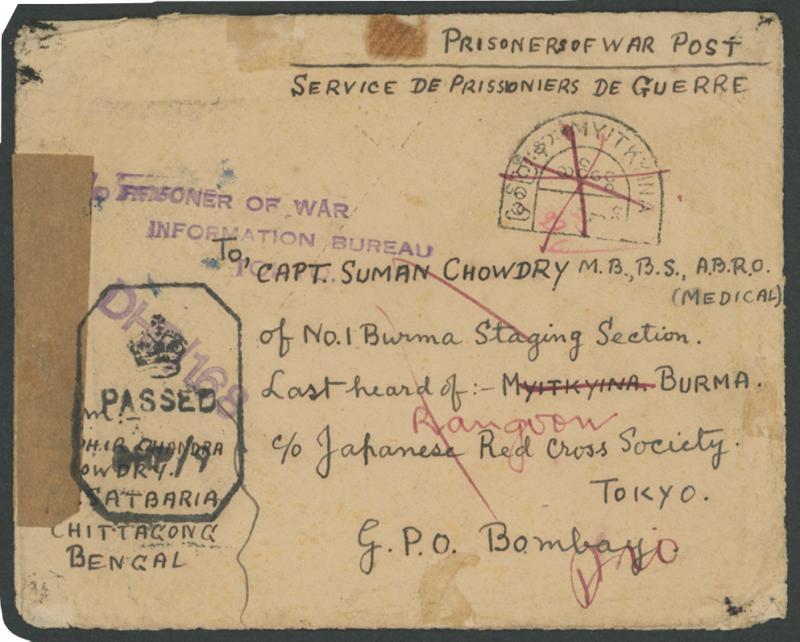 PRISONERS OF WAR POST
SERVICE DE PRISSIONIERS DE GUERRE
MYITKYINA
PRISONER OF WAR
INFORMATION BUREAU
To,
CAPT. SUMAN CHOWDRY M.B., B.S., A.B.R.O.
(MEDICAL)
of No. 1 Burma Staging Section.
Last heard of :- MYITKYINA. BURMA.
Rangoon
c/o Japanese Red Cross Society.
TOKYO.
G.P.O. Bombay.
PASSED
CHANDRA
OWDRY.
SATBARIA
CHITTAGONG
BENGAL